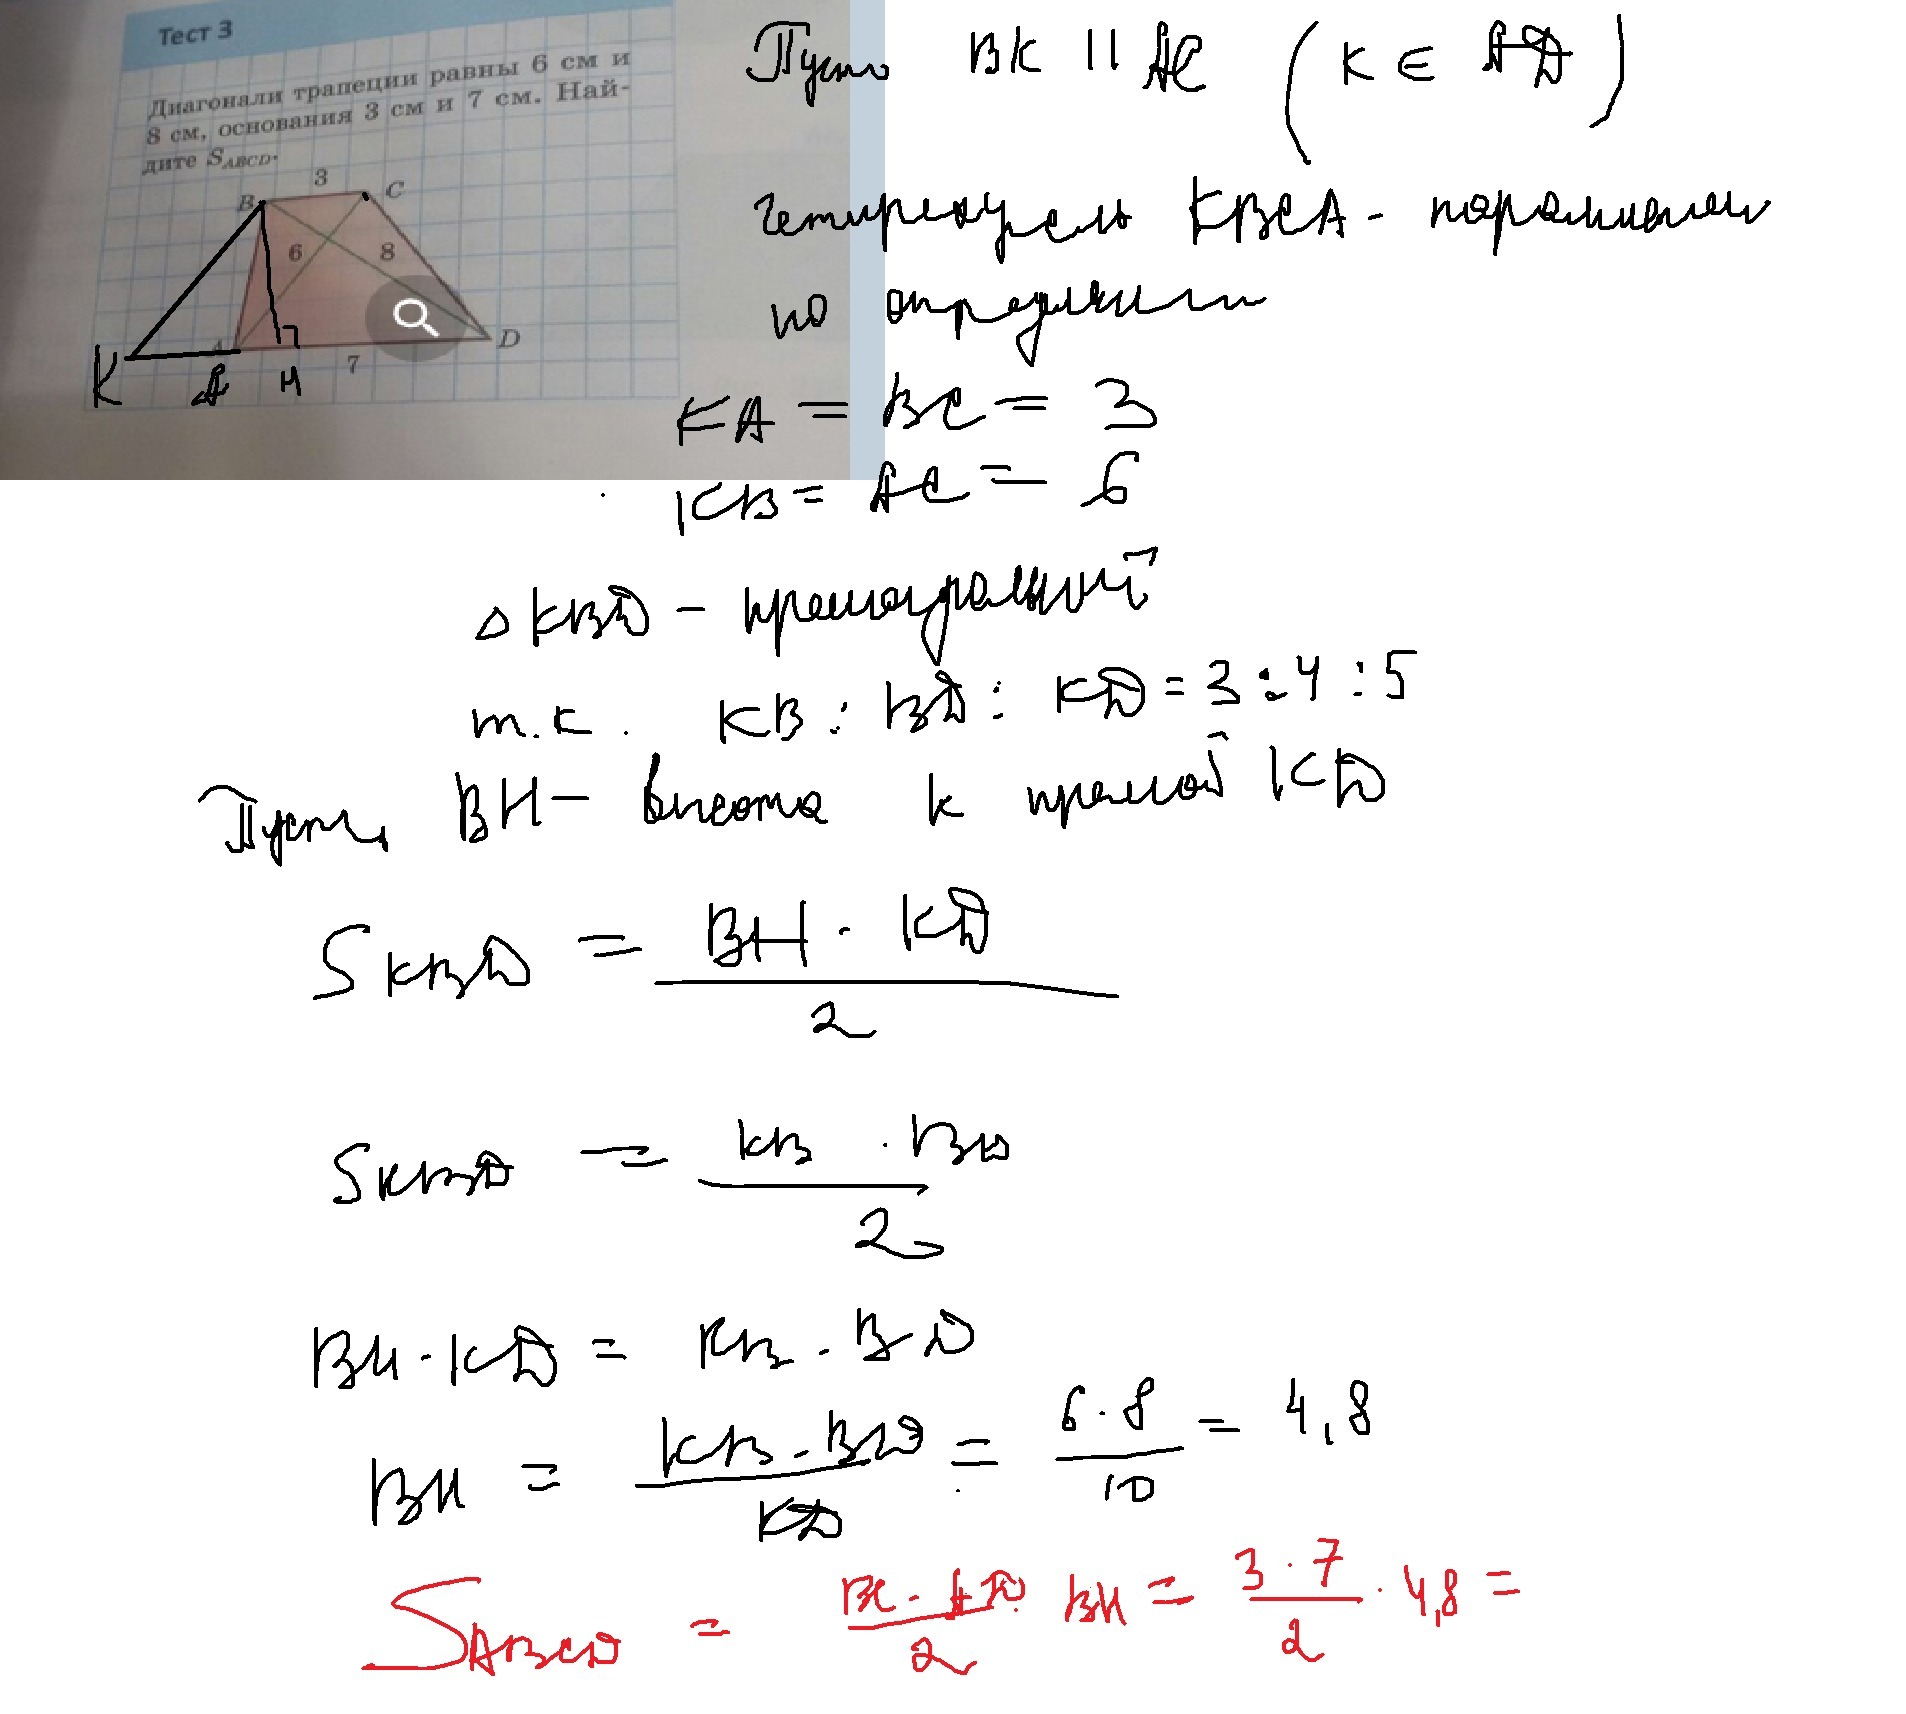 Тест 3
Диагонали трапеции равны 6 см и
8 см, основания 3 см и 7 см. Най-
дите S_ABCD.
B 3 C
6 8
A 7 D
K A H
Пусть BK || AC (K ∈ AD)
четырехугль KBCA - параллелогм
по определению
KA = BC = 3
KB = AC = 6
△KBD - прямоугольный
т.к. KB : BD : KD = 3 : 4 : 5
Пусть BH - высота к прямой KD
S_KBD = BH · KD / 2
S_KBD = KB · BD / 2
BH · KD = KB · BD
BH = KB · BD / KD = 6 · 8 / 10 = 4,8
S_ABCD = BC · AD / 2 BH = 3 · 7 / 2 · 4,8 =